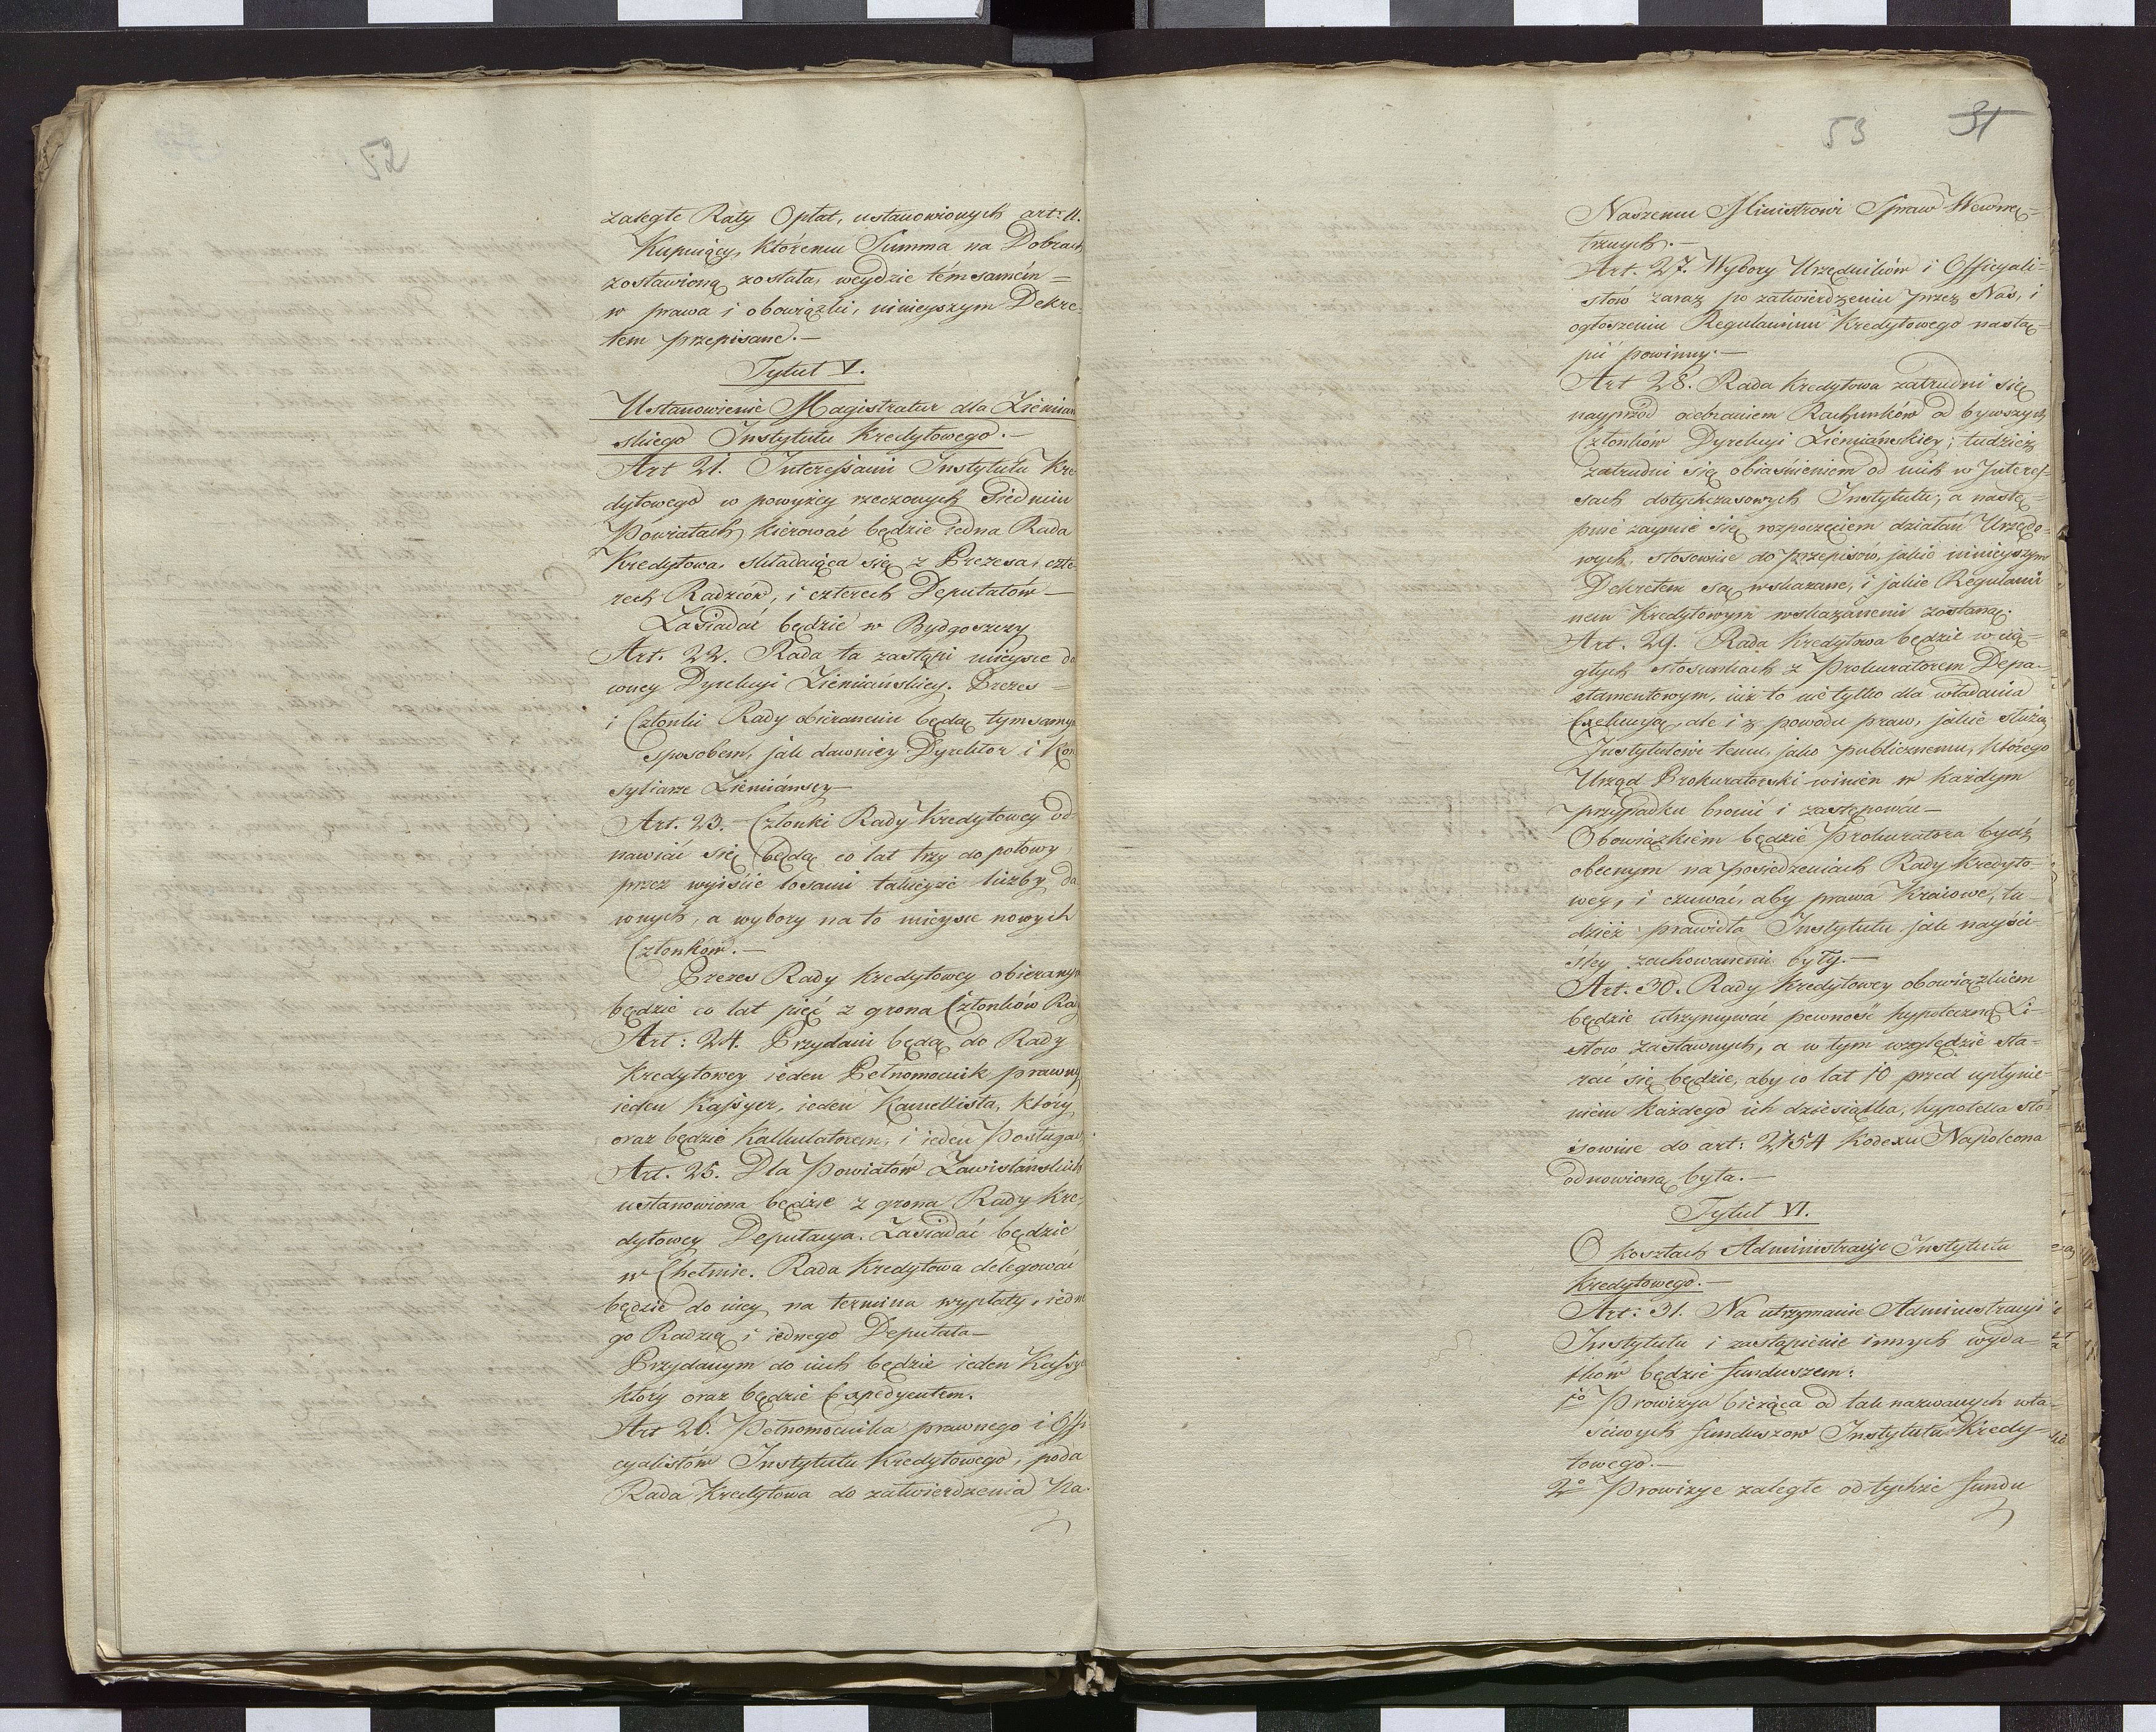 52
zaległe Raty Opłat, ustanowionych art: 11.
Kupuiący, któremu Summa na Dobrach
zostawioną została, weydzie tém samém =
w prawa i obowiązki, ninieyszym Dekre-
tem przepisane. —
Tytuł V.
Ustanowienie Magistratur dla Ziemian
skiego Instytutu Kredytowego. —
Art 21. Interessami Instytutu Kre
dytowego w powyżey rzeczonych Siedmiu
Powiatach, kierować będzie iedna Rada
Kredytowa, składaiąca się z Prezesa, czte-
rech Radzców, i czterech Deputatów —
Zasiadać będzie w Bydgoszczy
Art. 22. Rada ta zastąpi mieysce da
wney Dyrekcyi Ziemiańskiey. Prezes =
i Członki Rady obieranemi będą tym samym
sposobem, jak dawniey Dyrektor i Kon
syliarze Ziemiańscy —
Art. 23. — Członki Rady Kredytowey od
nawiać się będą co lat trzy do połowy,
przez wyiście losami takieyże liczby da
wnych, a wybory na to mieysce nowych
Członków. —
Prezes Rady Kredytowey obieranym
będzie co lat pięć z grona Członków Rady
Art: 24. Przydani będą do Rady
Kredytowey ieden Pełnomocnik prawny
ieden Kassyer, ieden Kancellista, który
oraz będzie Kalkulatorem, i ieden Posługacz
Art. 25. Dla Powiatów Zawiślańskich
ustanowiona będzie z grona Rady Kre-
dytowey Deputacya. Zasiadać będzie
w Chełmie. Rada Kredytowa delegować
będzie do niey na termina wypłaty, iedne
go Radzcę i iednego Deputata —
Przydanym do nich będzie ieden Kassyer
który oraz będzie Expedyentem.
Art 26. Pełnomocnika prawnego i Offi-
cyalistów Instytutu Kredytowego, poda
Rada Kredytowa do zatwierdzenia Na-
53 31
Naszemu Ministrowi Spraw Wewnę-
trznych. —
Art. 27. Wybory Urzędników i Officyali-
stów zaraz po zatwierdzeniu przez Nas, i
ogłoszeniu Regulaminu Kredytowego nastą-
pić powinny. —
Art 28. Rada Kredytowa zatrudni się
nayprzód odebraniem Rachunków od bywszych
Członków Dyrekcyi Ziemiańskiey; tudzież
zatrudni się obiaśnieniem od nich w Interes-
sach dotychczasowych Instytutu; a nastę-
pnie zaymie się rozpoczęciem działań Urzędo-
wych, stosownie do przepisów, jakie ninieyszym
Dekretem są wskazane, i jakie Regulami
nem Kredytowym wskazanemi zostaną.
Art. 29. Rada Kredytowa będzie w cią-
głych stosunkach z Prokuratorem Depar-
tamentowym, iuż to nie tylko dla władania
Exekucyą, ale i z powodu praw, jakie służą
Instytutowi temu, jako publicznemu, którego
Urząd Prokuratorski winien w każdym
przypadku bronić i zastępować —
Obowiązkiem będzie Prokuratora bydź
obecnym na posiedzeniach Rady Kredyto-
wey, i czuwać, aby prawa Kraiowe, tu-
dzież prawidła Instytutu jak nayści-
śley zachowanemi były. —
Art. 30. Rady Kredytowey obowiązkiem
będzie utrzymywać pewność hypoteczną Li-
stów zastawnych, a w tym względzie sta-
rać się będzie, aby co lat 10 przed upłynie-
niem każdego ich dziesiątka, hypoteka sto-
sownie do art: 2154 Kodexu Napoleona
odnowioną była. —
Tytuł VI.
O kosztach Administracyi Instytutu
Kredytowego. —
Art: 31. Na utrzymanie Administracyi
Instytutu i zastąpienie innych wyda-
tków będzie funduszem:
1o Prowizya bieżąca od tak nazwanych wła-
ściwych funduszow Instytutu Kredy-
towego. —
2o Prowizye zaległe od tychże fundu